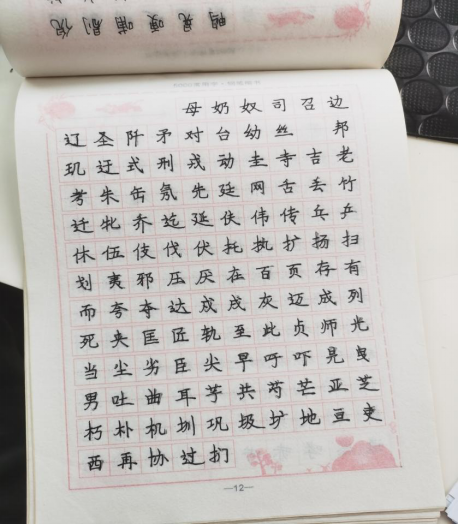 母奶奴司召边
辽圣阡矛对台幼丝 邦
玑迂式刑戎动圭寺吉老
考朱缶氖先廷网舌丢竹
迁牝乔迄延伕伟传乓乒
休伍伎伐伏扥执扩扬扫
划夷邪压厌在百页存有
而夸夺达成戌灰迈成列
死夹匡匠轨至此贞师光
当尘劣臣尖早吁吓晃
男吐曲耳芋共芍芒亚芝
朽朴机圳巩圾圹地豆吏
西再协过扪
—12—